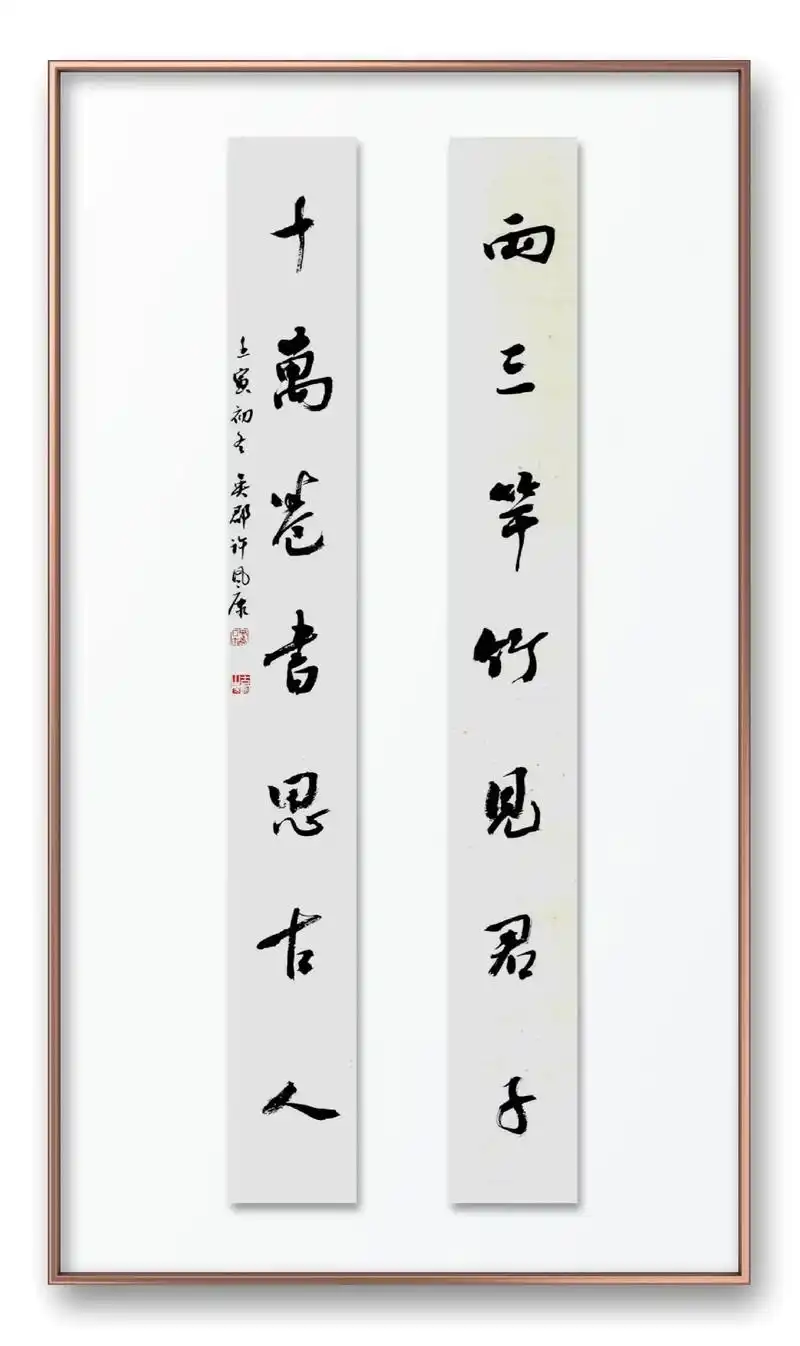 兩三竿竹見君子
十萬卷書思古人
壬寅初冬 吳郡許鳳康